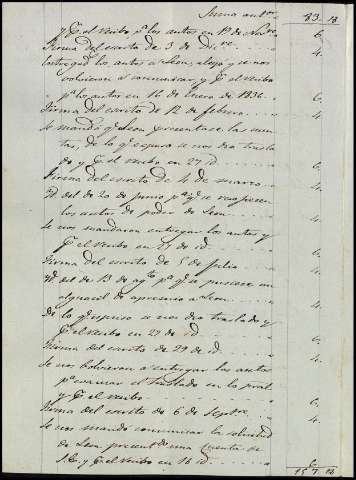 Suma antr. 83. 18
y p.r el recibo p.a los autos en 1º de Nov.re 6.
Firma del escrito de 3 de Dic.re 4.
Entregad los autos a Leon, alegó y se nos
volvieron á comunicar, y p.r el recibo
p.a los autos en 16 de Enero de 1836. 6.
Firma del escrito de 12 de febrero 4.
Se mandó q.e Leon presentase las cuentas,
de lo q.e espuso se nos dio traslado
y p.r el recibo en 27 id. 6.
Firma del escrito de 4 de marzo 4.
Id. del de 20 de junio p.a q.e se recojiesen
los autos de poder de Leon 4.
Se nos mandaron entregar los autos y
p.r el recibo en 27 id. 6.
Firma del escrito de 5 de julio 4.
Id. del de 13 de ag.to p.a q.e se pusiese un
alguacil de apremio a Leon 4.
De lo q.e espuso se nos dio traslado y
p.r el recibo en 27 id. 6.
Firma del escrito de 29 de id. 4.
Se nos bolvieron á entregar los autos
p.a evacuar el traslado en lo pral
y p.r el recibo 6.
Firma del escrito de 6 de Septre. 4.
Se nos mandó comunicar la solicitud
de Leon present.do una cuenta de
y p.r el recibo en 16 id. 6.
157. 18